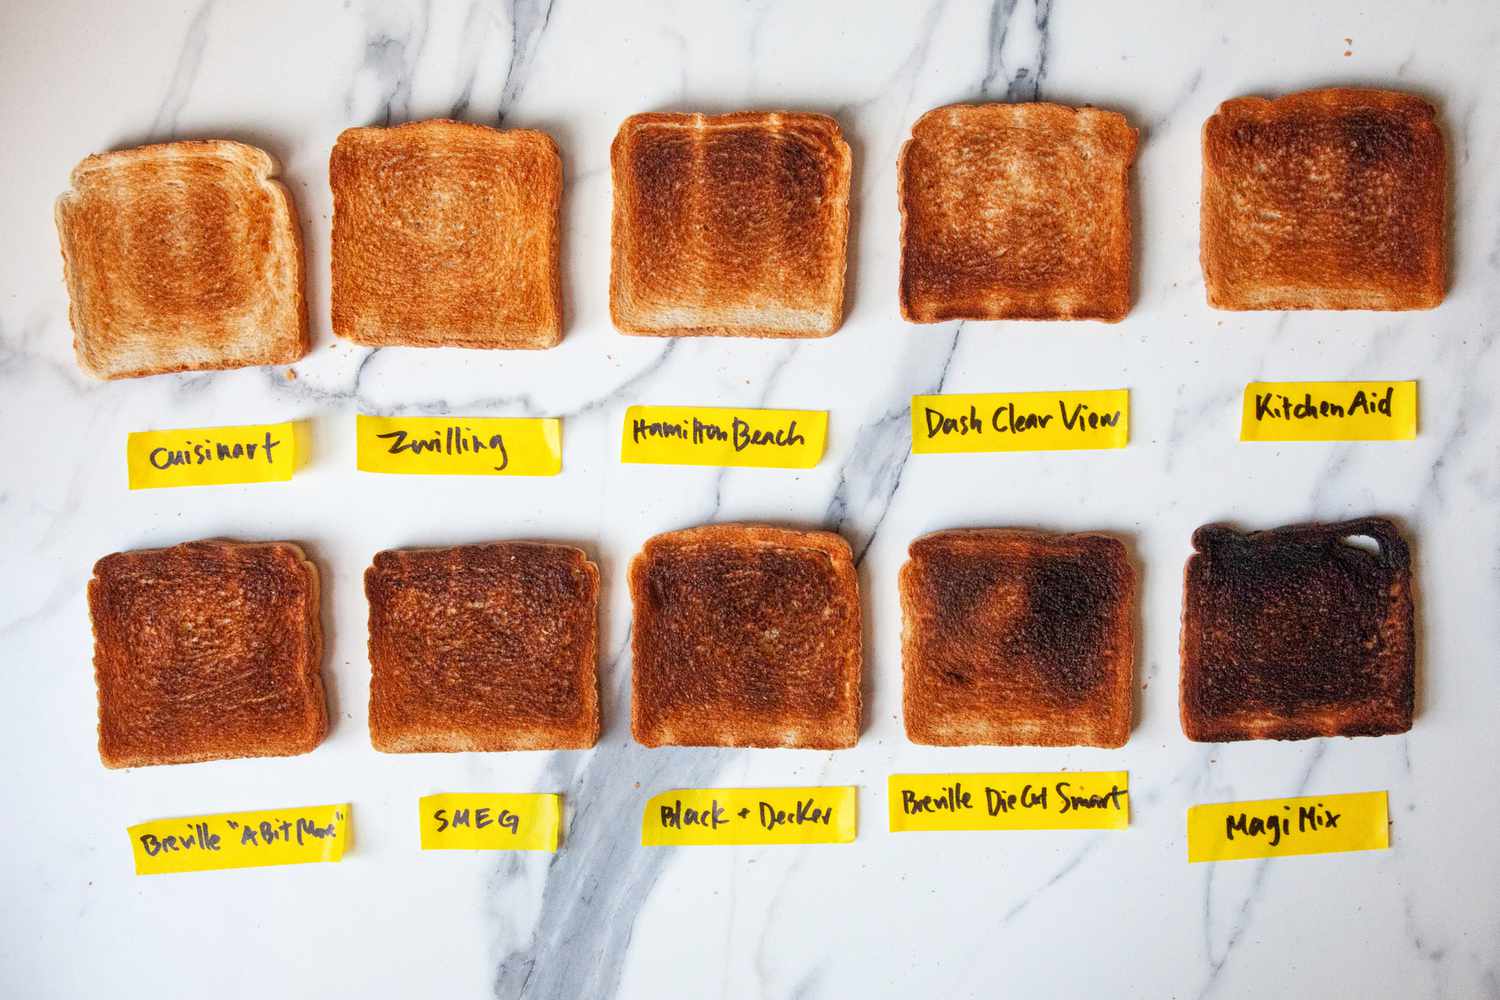 Cuisinart
Zwilling
Hamilton Beach
Dash Clear View
KitchenAid
Breville "A Bit More"
SMEG
Black + Decker
Breville Die Cast Smart
MagiMix